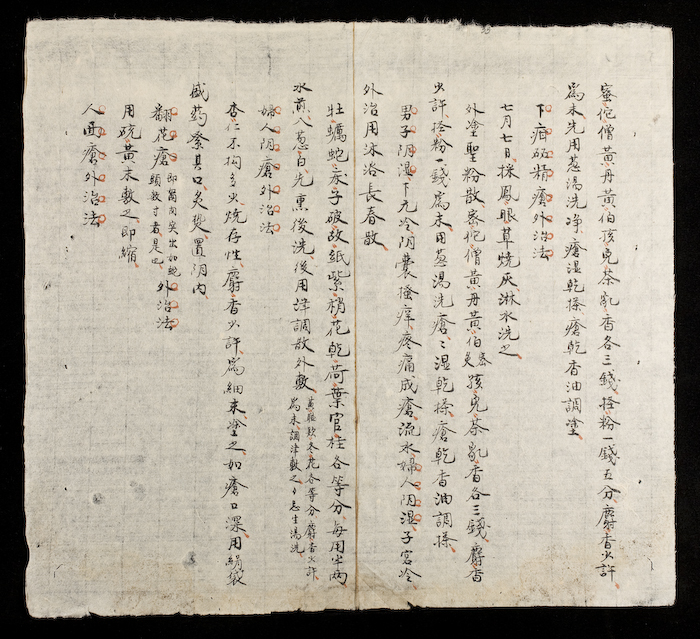 蜜佗僧黄丹黄伯孩児茶乳香各三錢輕粉一錢五分麝香少許
爲末先用葱湯洗净瘡湿乾掺瘡乾香油調塗
下疳砳精瘡外治法
七月七日採鳳眼草烧灰淋水洗之
外塗聖粉散密佗僧黄丹黄伯蜜炙孩児茶乳香各三錢麝香
少許輕粉一錢爲末用葱湯洗瘡〻湿乾掺瘡乾香油調搽
男子阴湿下元冷阴囊搔痒疼痛成瘡流水婦人阴湿子宮冷
外治用沐浴長春散
牡蠣蛇床子破故紙紫梢花乾荷葉官桂各等分每用半两
水煎入葱白先熏後洗後用津調散外敷黄柏款冬花各等分麝香少許爲末調津敷之
婦人阴瘡外治法
杏仁不拘多少烧存性麝香少許爲細末塗之如瘡口深用绢袋
盛药紮其口炙热置阴内
翻花瘡即翁肉突出如蛇頭数寸者是也外治法
用硫黄末敷之即縮
人面瘡外治法